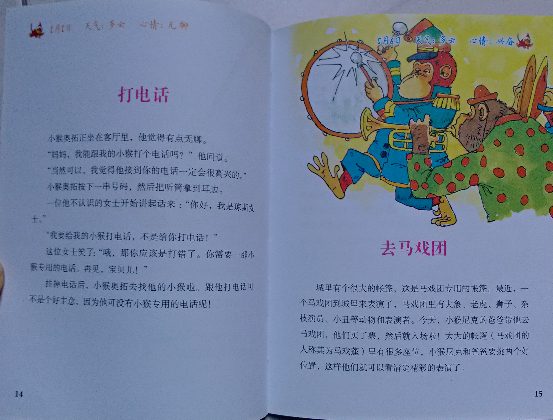 天气：多云 心情：无聊
打电话
小猴奥拓正坐在客厅里，他觉得有点无聊。
“妈妈，我能跟我的小猴打个电话吗？”他问道。
“当然可以，我觉得他接到你的电话一定会很高兴的。”
小猴奥拓按下一串号码，然后把听筒拿到耳边。
一位他不认识的女士开始讲起话来：“你好，我是
士。”
“我要给我的小猴打电话，不是给你打电话！”
这位女士笑了：“哦，那你应该是打错了。你需要一部小
猴专用的电话。再见，宝贝儿！”
挂掉电话后，小猴奥拓去找他的小猴啦。跟他打电话可
不是个好主意，因为他可没有小猴专用的电话呢！
14
天气：多云 心情：兴奋
去马戏团
城里有个很大的帐篷，这是马戏团专用的帐篷。最近，一
个马戏团到城里来表演了，马戏团里有大象、老虎、狮子、杂
技演员、小丑等动物和表演者。今天，小猴尼克的爸爸带他去
马戏团，他们买了票，然后就入场啦！大大的帐篷（马戏团的
人称其为马戏篷）里有很多座位，小猴尼克和爸爸要到两个好
位置，这样他们就可以看清楚精彩的表演了
15